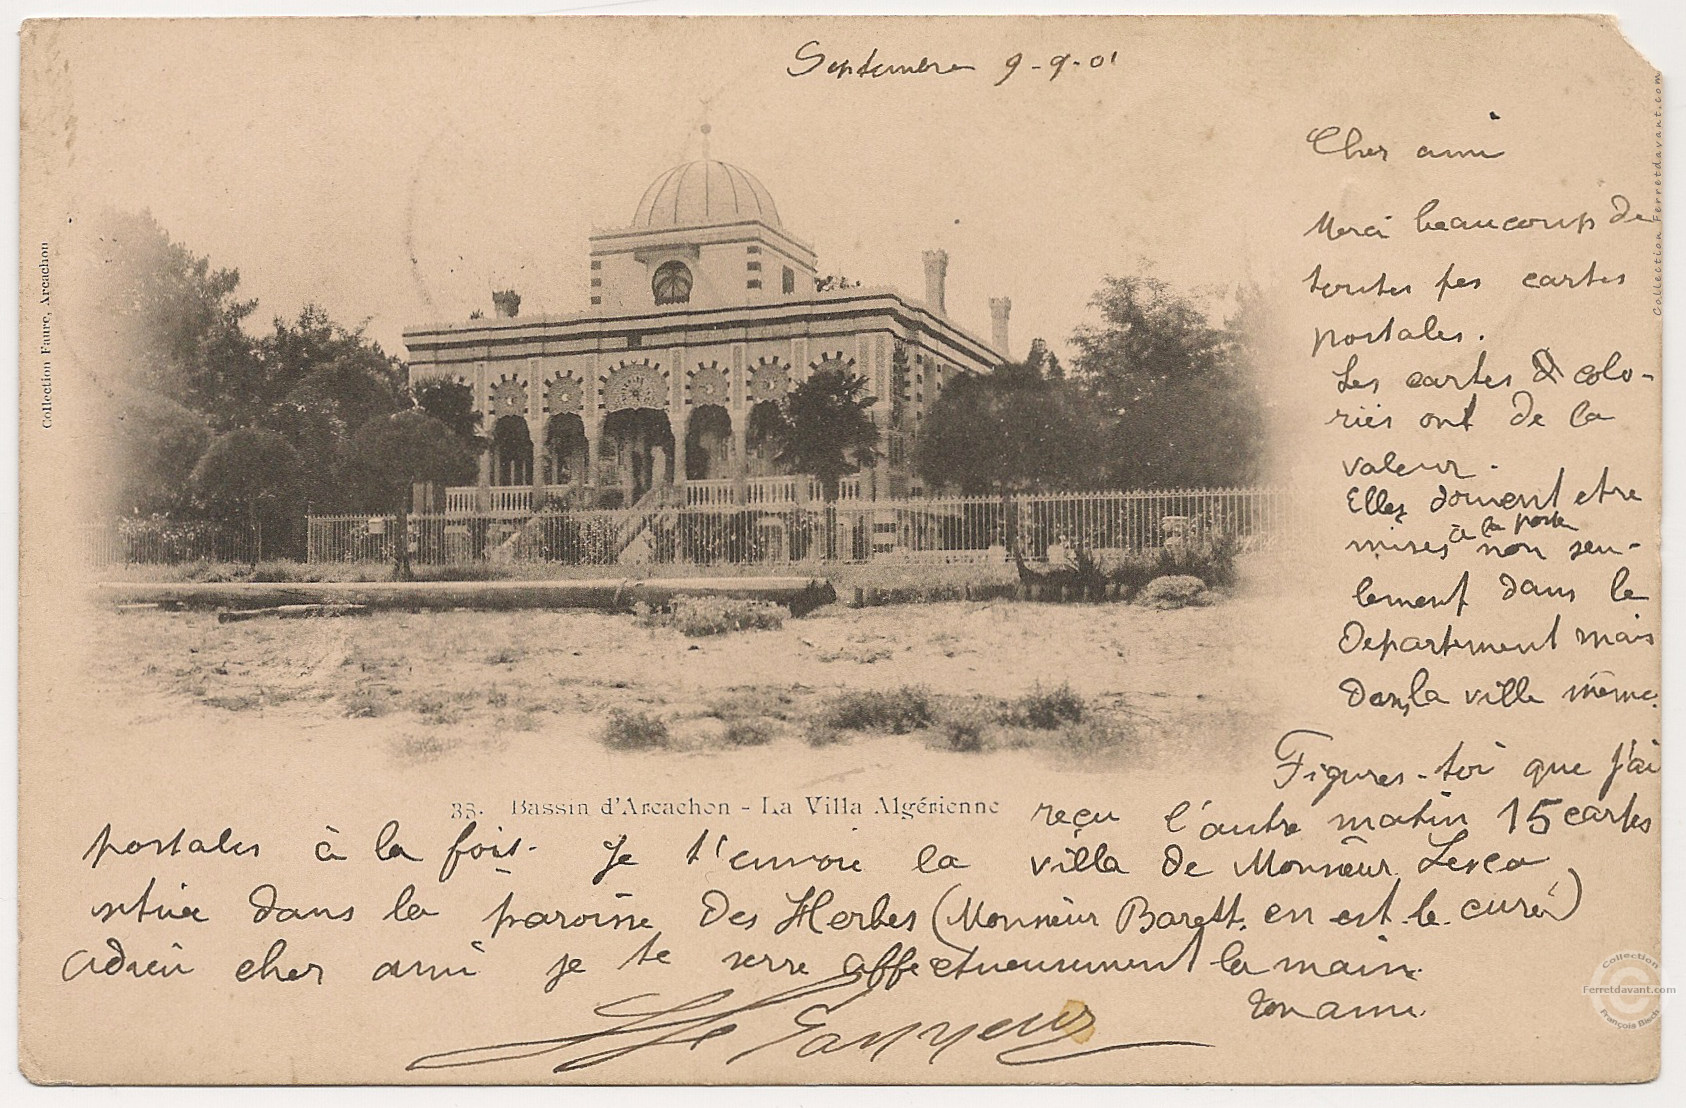 Septembre 9-9-01
Cher ami
Merci beaucoup de
toutes tes cartes
postales.
Les cartes colo-
riés ont de la
valeur.
Elles doivent etre
mises à la poste non seu-
lement dans le
Departement mais
dans la ville même.
Figures-toi que j'ai
33. Bassin d'Arcachon - La Villa Algérienne
reçu l'autre matin 15 cartes
postales à la fois. Je t'envoie la villa de Monsieur Lesca
située dans la paroisse des Herbes (Monsieur Barett. en est le curé)
adieu cher ami je te serre affectueusement la main.
Ton ami.
Collection Faure, Arcachon
Collection Ferretdavant.com
Collection
Ferretdavant.com
François Bisch